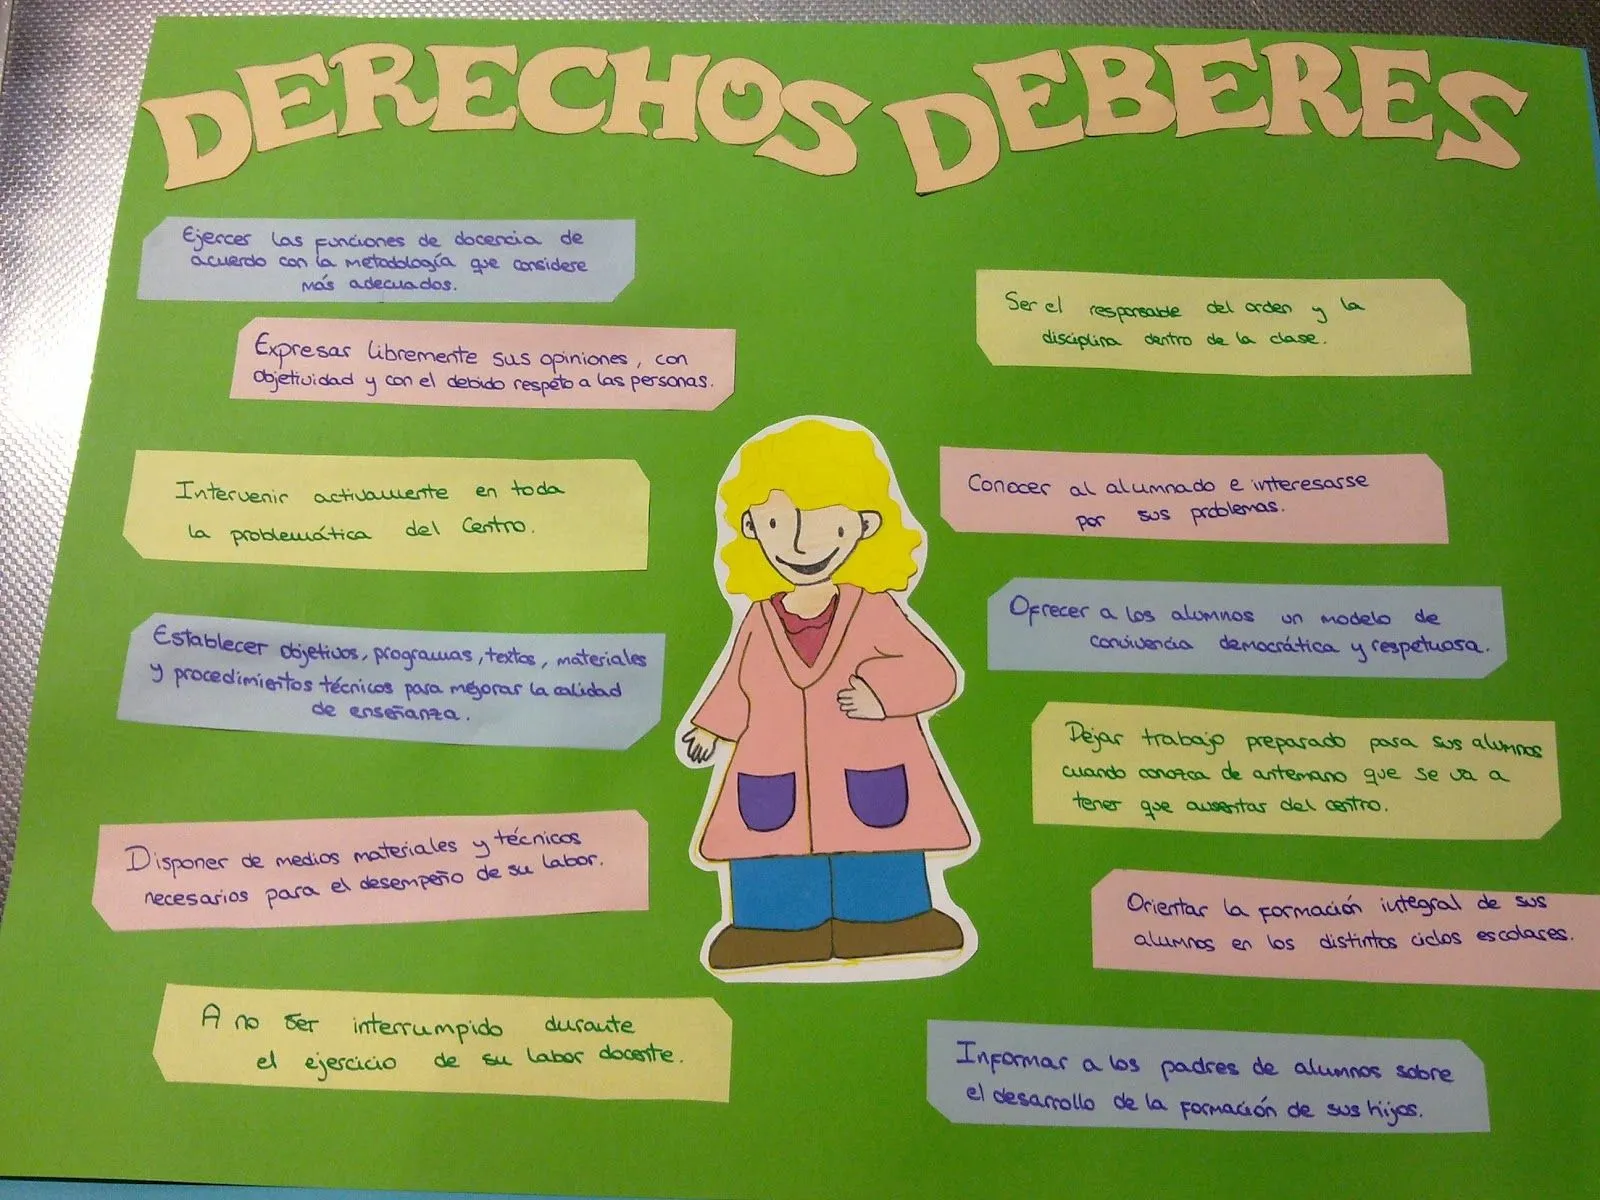 DERECHOS DEBERES
Ejercer las funciones de docencia de
acuerdo con la metodología que considere
más adecuados.
Expresar libremente sus opiniones, con
objetividad y con el debido respeto a las personas.
Intervenir activamente en toda
la problemática del Centro.
Establecer objetivos, programas, textos, materiales
y procedimientos técnicos para mejorar la calidad
de enseñanza.
Disponer de medios materiales y técnicos
necesarios para el desempeño de su labor.
A no ser interrumpido durante
el ejercicio de su labor docente.
Ser el responsable del orden y la
disciplina dentro de la clase.
Conocer al alumnado e interesarse
por sus problemas.
Ofrecer a los alumnos un modelo de
convivencia democrática y respetuosa.
Dejar trabajo preparado para sus alumnos
cuando conozca de antemano que se va a
tener que ausentar del centro.
Orientar la formación integral de sus
alumnos en los distintos ciclos escolares.
Informar a los padres de alumnos sobre
el desarrollo de la formación de sus hijos.